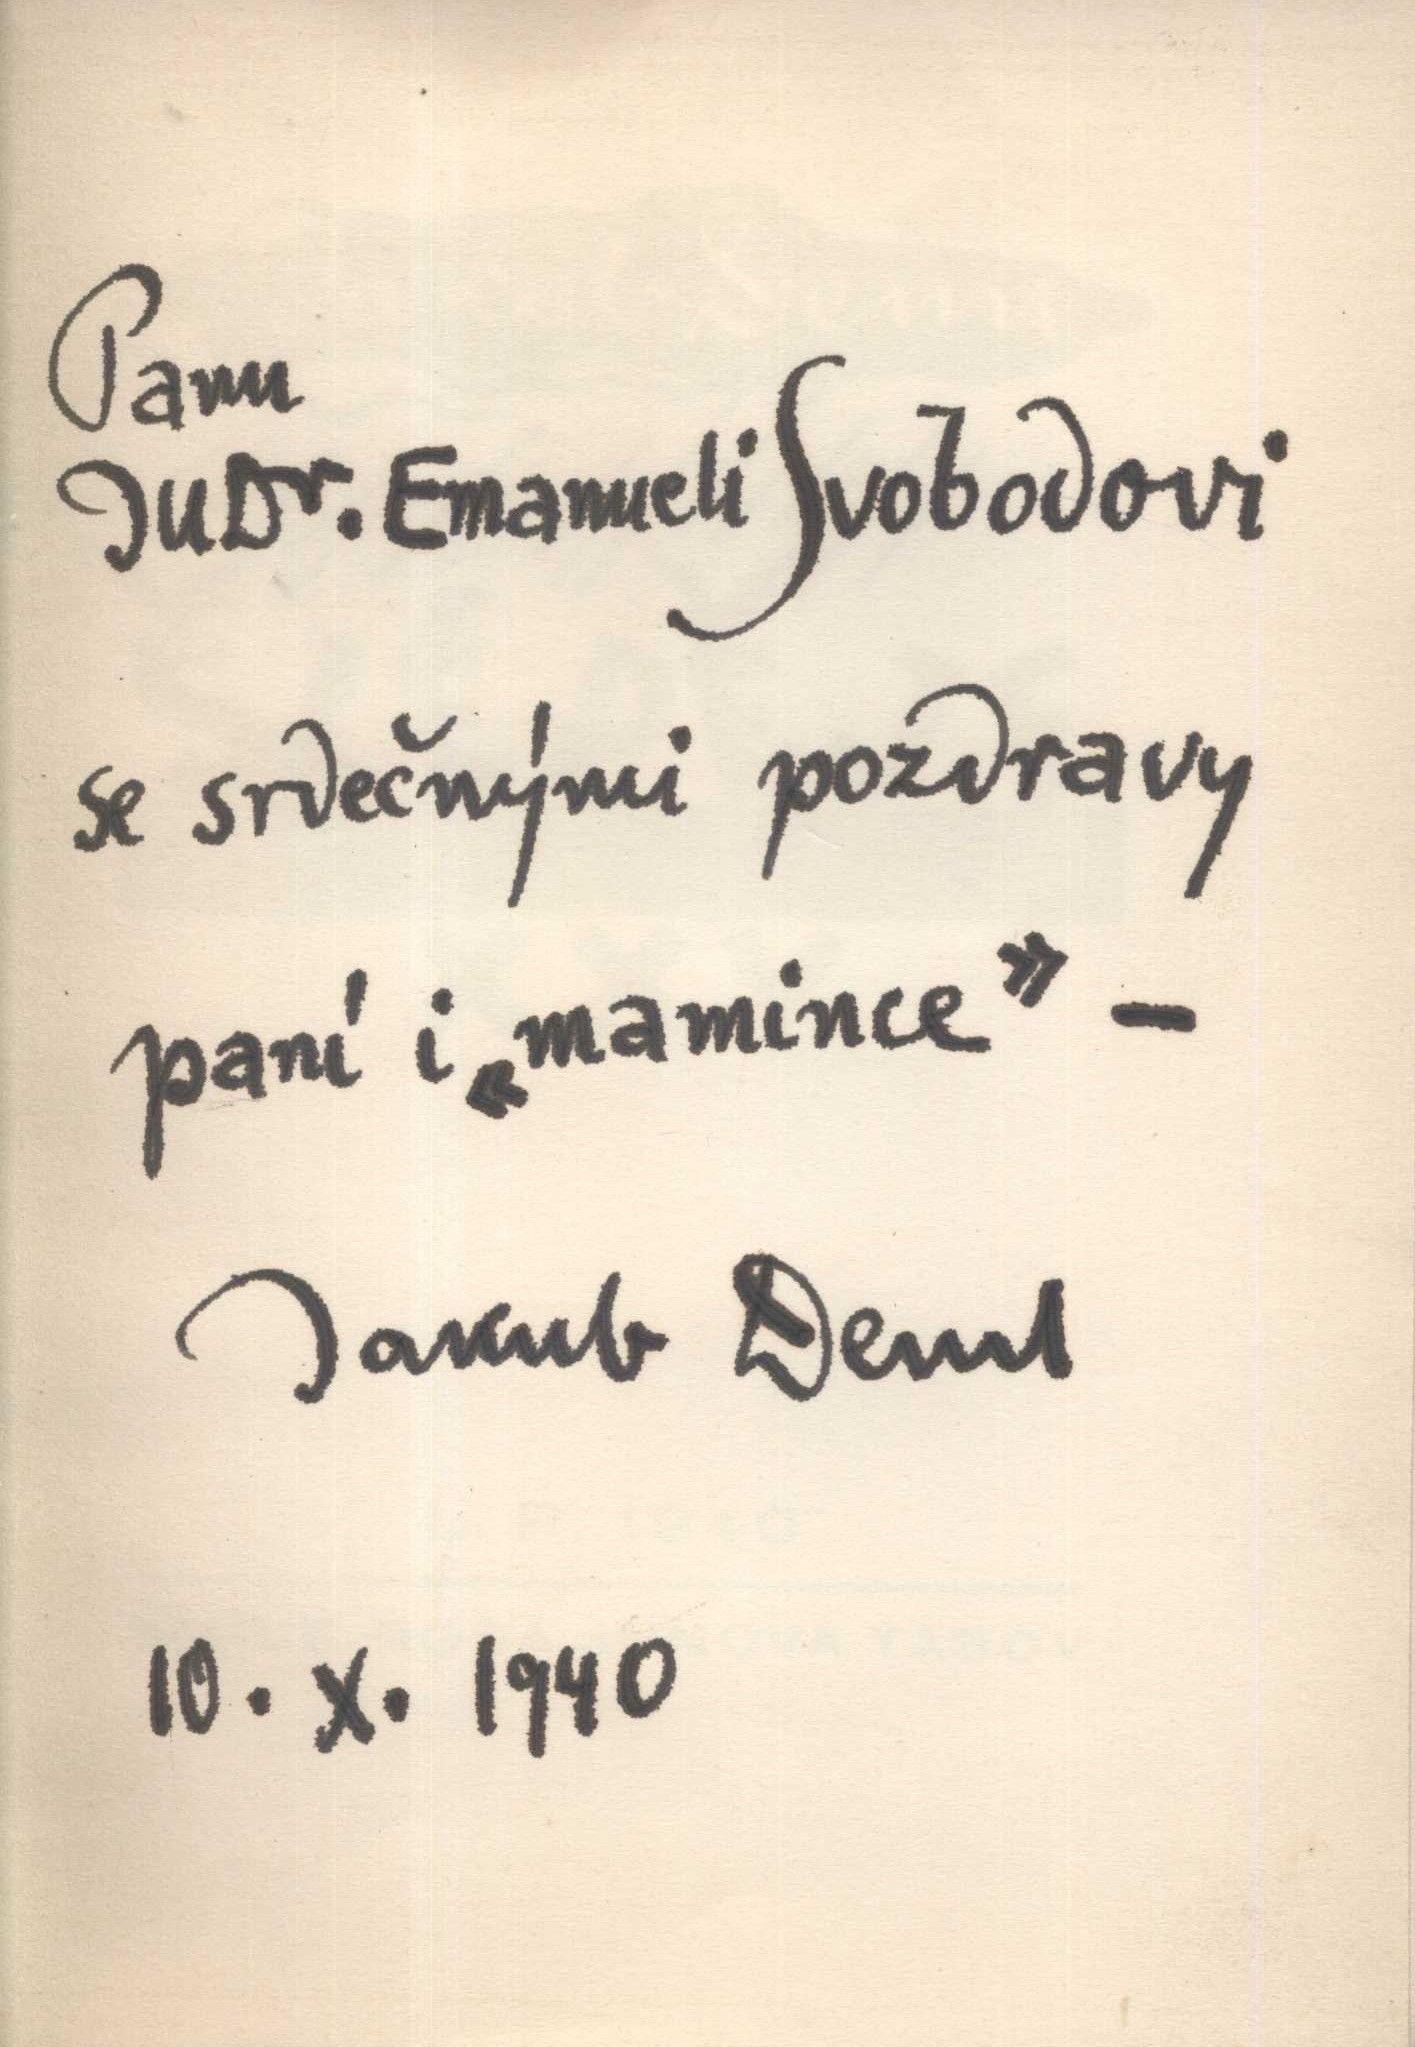 Panu
JUDr. Emanueli Svobodovi
se srdečnými pozdravy
paní i «mamince» –
Jakub Deml
10. X. 1940